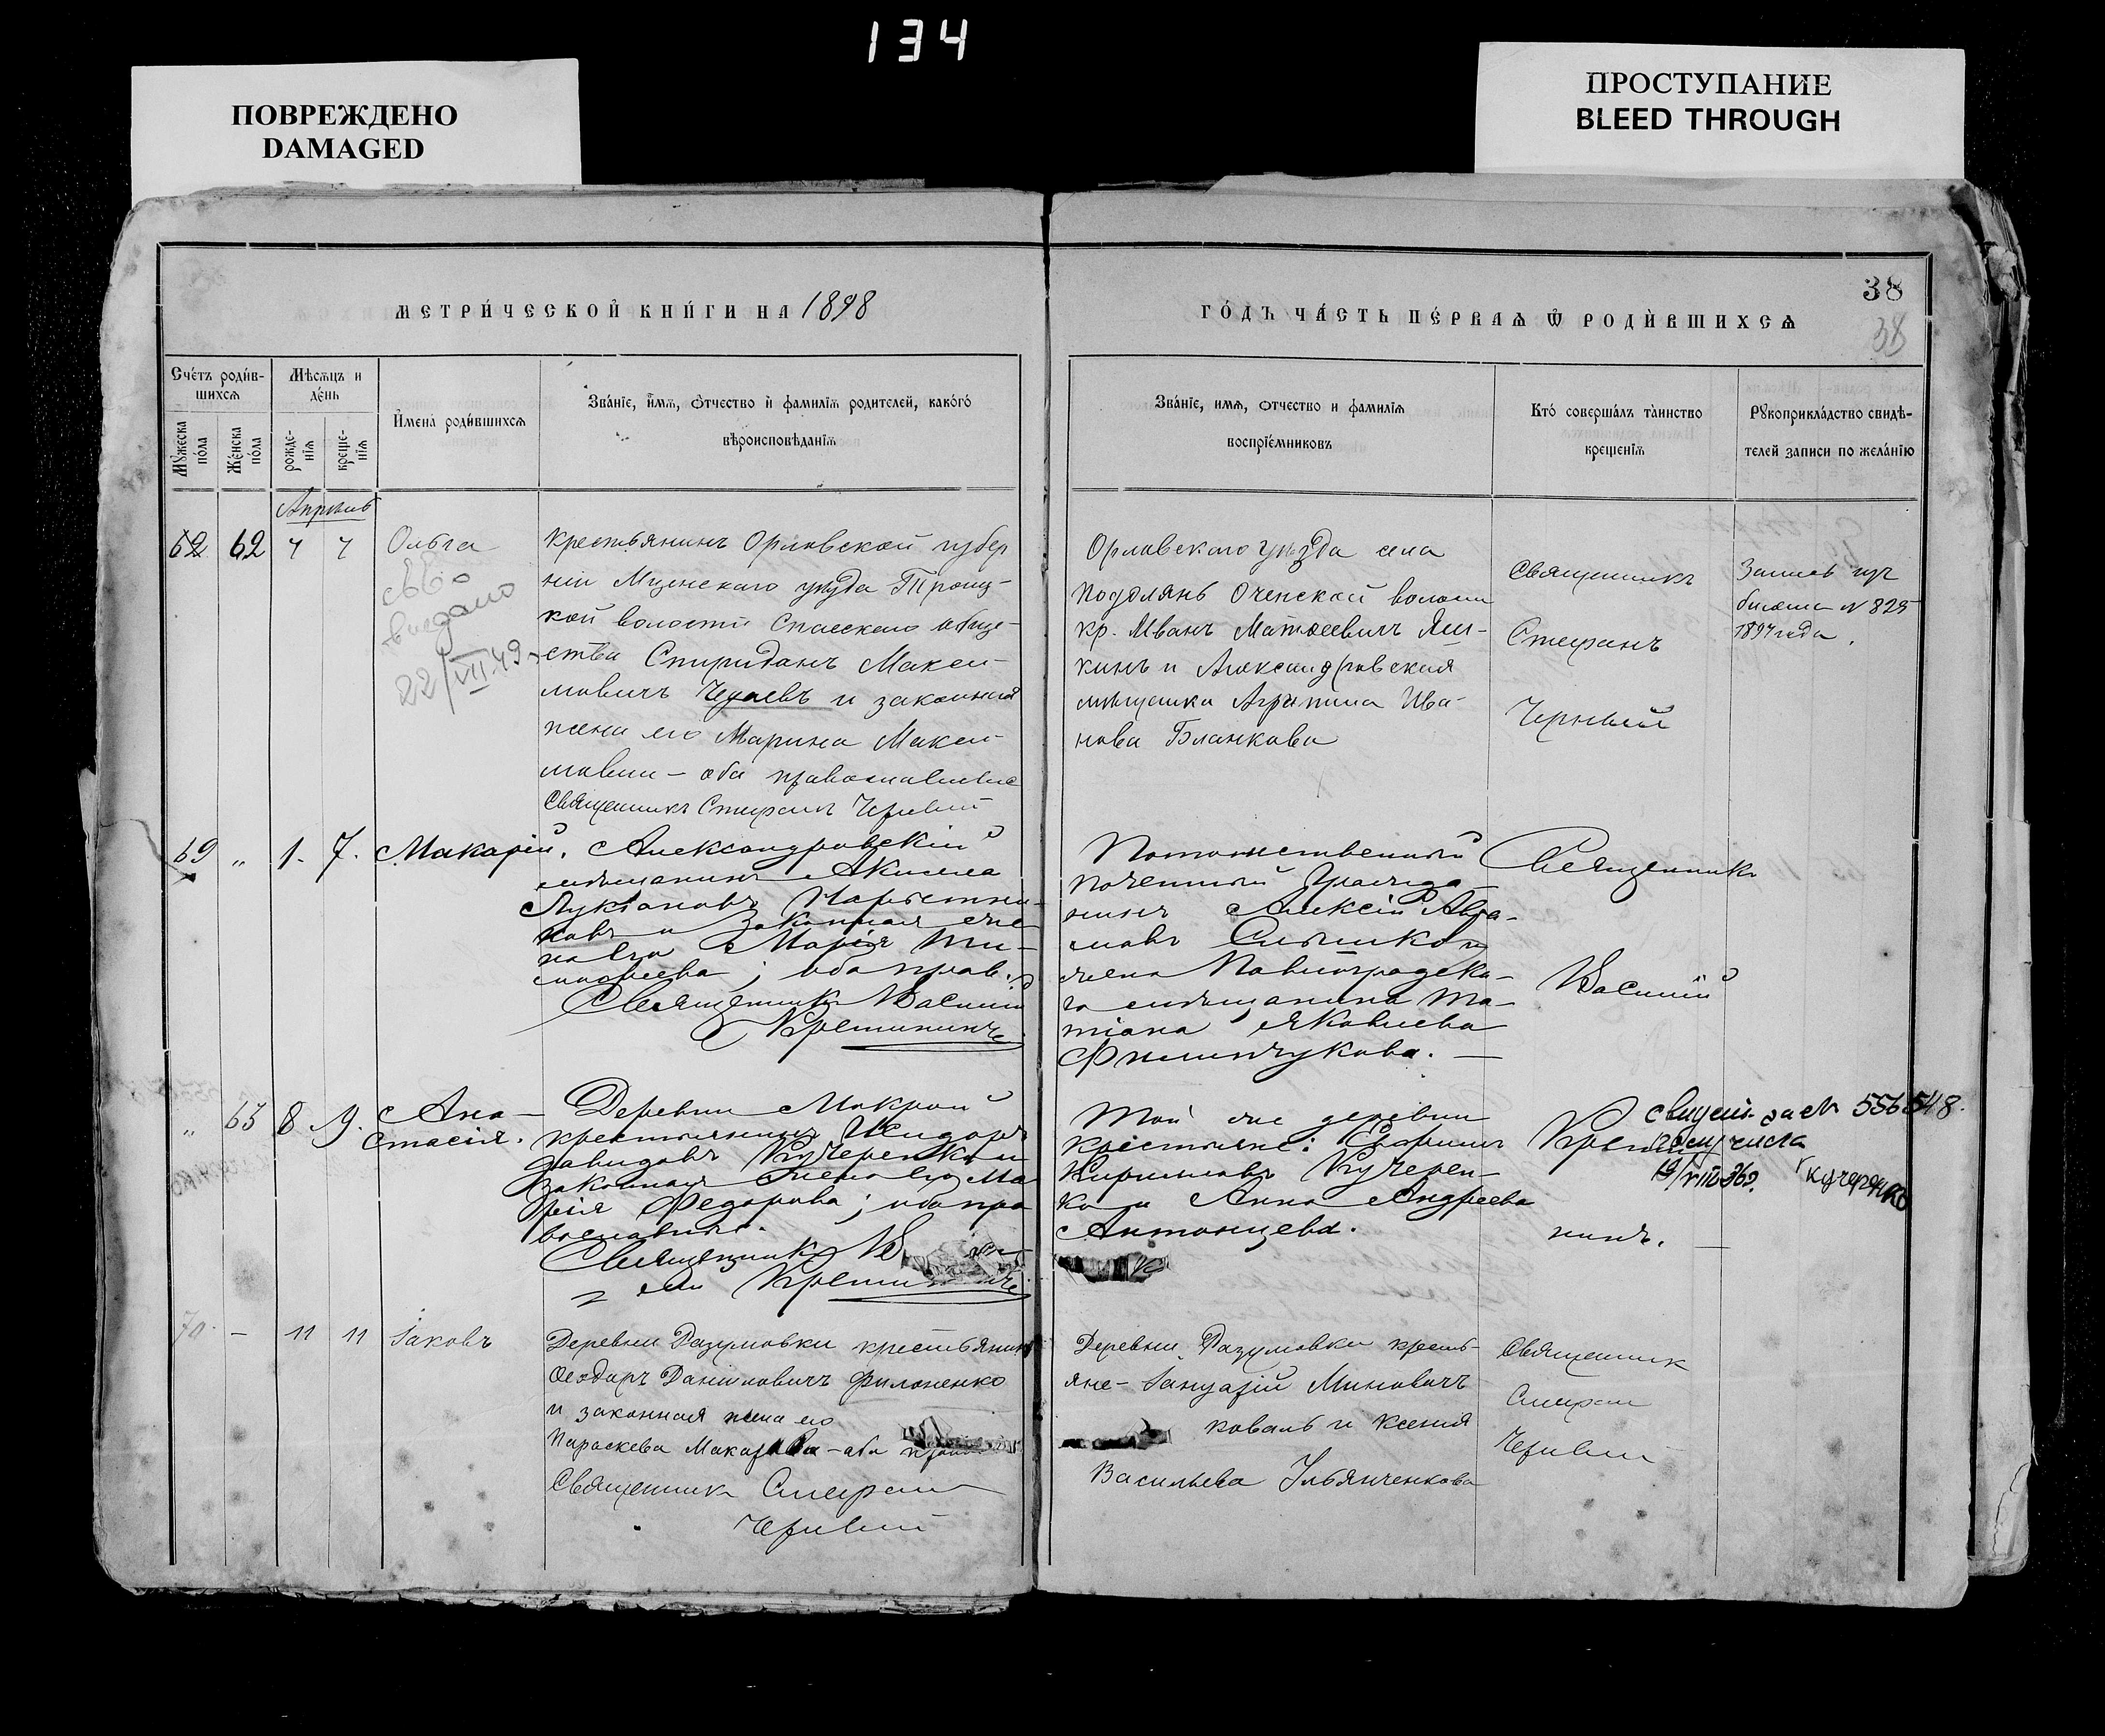 134
ПОВРЕЖДЕНО
DAMAGED
ПРОСТУПАНИЕ
BLEED THROUGH
38
38
МЕТРИ́ЧЕСКОЙ КНИ́ГИ НА 1898
ГО́ДЪ ЧА́СТЬ ПЕ́РВАѦ Ѿ РОДИ́ВШИХСѦ
Сче́тъ роди́в-
шихсѧ
Мꙋжеска
по́ла
Же́нска
по́ла
Мѣ́сѧцъ и
де́нь
рожде-
нїѧ
креще-
нїѧ
И҆мена̀ роди́вшихсѧ
Зва́нїе, и҆́мѧ, ѻ҆́тчество и҆ фами́лїѧ роди́телей, како́гѡ
вѣроисповѣ́данїѧ
Зва́нїе, имѧ, отчество и фами́лїѧ
воспрїе́мниковъ
Кто̀ соверша́лъ та́инство
креще́нїѧ
Рꙋкоприкла́дство свидѣ́-
телей записи по жела́нїю
Апрѣль
62 62 4 4 Ольга
св-во
выдано
22/VII.49
крестьянинъ Орловской губер
ніи Мценскаго уѣзда Троиц-
кой волости Спасскаго обще-
ства Спиридонъ Макси-
мовичъ и законная
жена его Марина Макси-
мовна – оба православные
Священникъ Стефанъ Черный
Орловскаго уѣзда села
Подолянъ волости
кр. Иванъ Матѳеевичъ Яш-
кинъ и Александровская
мѣщанка Агрипина Ива-
нова Бланкова
Священникъ
Стефанъ
Черный
Запись
билета № 825
1897 года.
69 „ 1. 7. Макарій.
Александровскій
мѣщанинъ Акимъ
Лукіановъ
ковъ и законная же
на его Марія Ти-
моѳеева; оба прав.
Священникъ Василій
Крещининъ
Потомственный
почетный гражда-
нинъ Алексій Авра-
мовъ и
жена Павлоградска-
го мѣщанина Та-
тіана Яковлева
Филипчукова.
Священникъ
Василій
„ 63 8. 9. Ана-
стасія.
Деревни Мокрой
крестьянинъ Исидоръ
Давидовъ Кучеренко и
законная жена его Ма
рія Федорова; оба пра
вославные.
Священникъ В
лій
Той же деревни
крестьяне:
Кириловъ Кучерен-
ко и Анна Андреева
Антонцева.
нинъ.
Свидет. за № 556548.
числа
19/VIII-36г. Кучеренко
70. — 11 11 Іаковъ
Деревни Разумовки крестьянинъ
Ѳеодоръ Даниловичъ Филоненко
и законная жена его
Параскева Макарова – оба прав
Священникъ Стефанъ
Черный
Деревни Разумовки кресть-
яне – Іануарій Миновичъ
коваль и Ксенія
Васильева Ульянченкова
Священникъ
Стефанъ
Черный